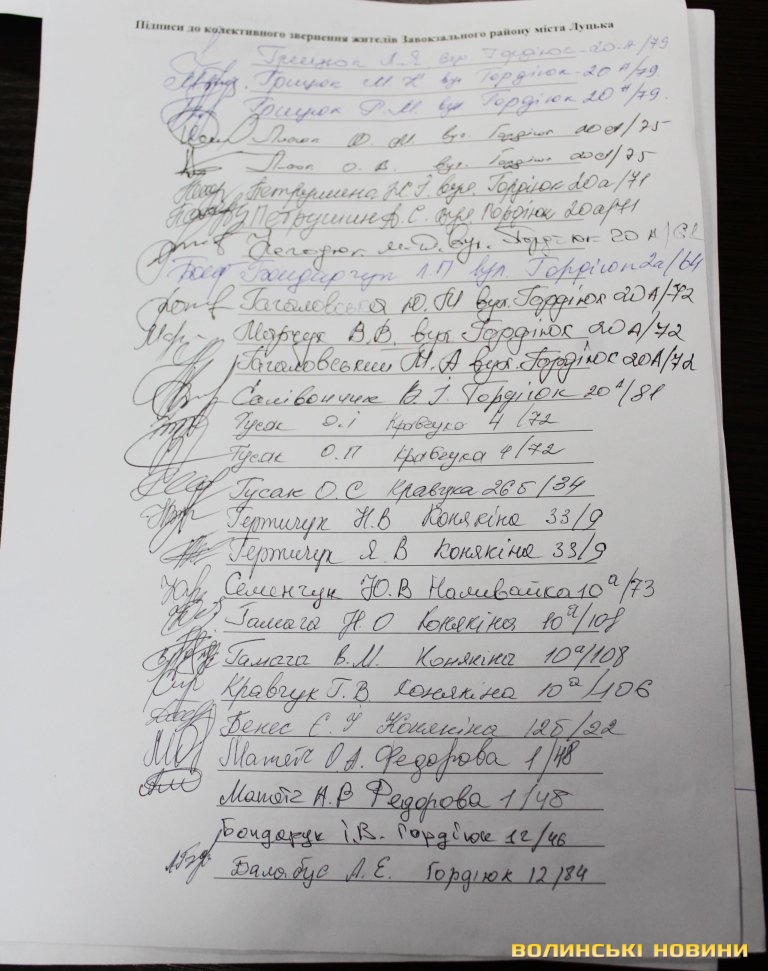 Підписи до колективного звернення жителів Завокзального району міста Луцька
Грицюк Л.Я вул Гордіюк 20-А/79
Грицюк М Н вул Гордіюк-20 А/79.
Грицюк Р.М. вул Гордіюк 20 А/79.
Ю. М. вул. Гордіюк 20А/75
О. В. вул. Гордіюк 20А/75
Петрушина Н.І вул. Гордіюк 20а/71
Петрушин А. С. вул Гордіюк 20а/71
М. Д. вул. Гордіюк 20 А/
Бондарчук Л.П вул. Гордіюк 2а/64
Гагаловська Ю.М вул. Гордіюк 20А/72
Марчук В.В. вул. Гордіюк 20А/72
Гагаловський М.А вул. Гордіюк 20А/72
Салівончик В.І. Гордіюк 20 А/81
Гусак О.І Кравчука 4/72
Гусак О.П Кравчука 4/72
Гусак О.С Кравчука 26б/34
Гертичук Н.В Конякіна 33/9
Гертичук Я.В Конякіна 33/9
Семенчук Ю.В Наливайка 10а/73
Гамага Н.О Конякіна 10а/108
Гамага В.М. Конякіна 10а/108
Кравчук Г.В Конякіна 10а/106
Бенес Є. У Конякіна 12б/22
О.А. Федорова 1/48
А.В Федорова 1/48
Бондарук І.В. Гордіюк 12/46
Балабус Л.Е. Гордіюк 12/84
ВОЛИНСЬКІ НОВИНИ